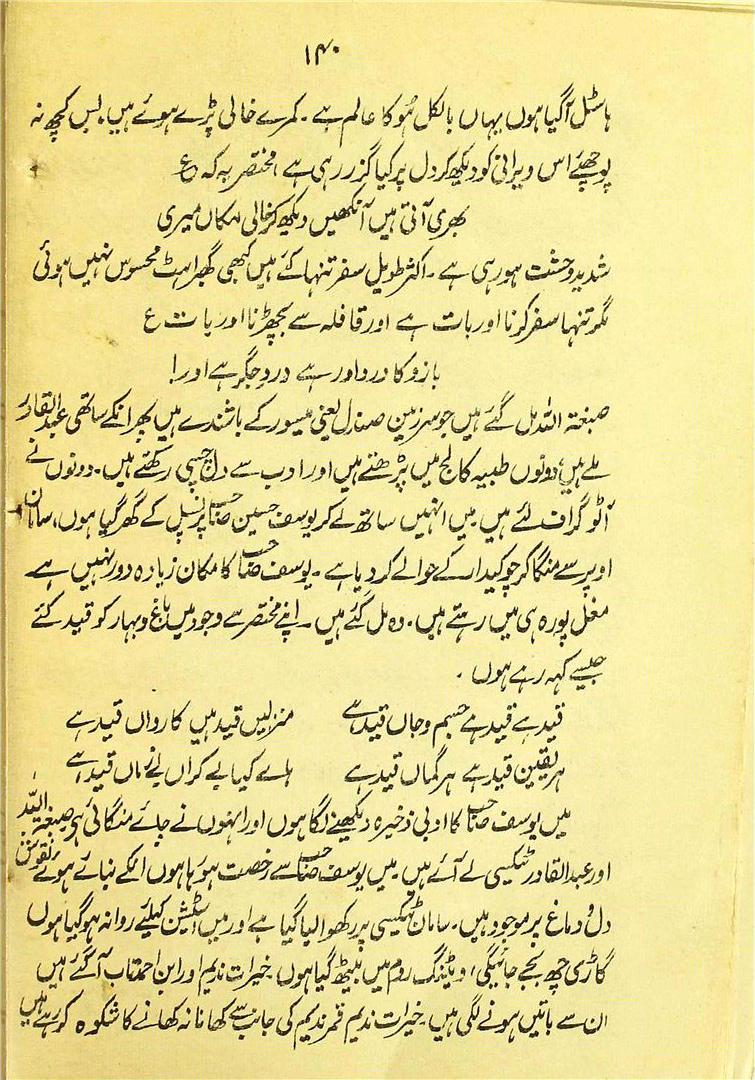 ۱۴۰
ہاسٹل آگیا ہوں یہاں بالکل ہُو کا عالم ہے ۔ کمرے خالی پڑے ہوئے ہیں۔ بس کچھ نہ
پوچھئے اس ویرانی کو دیکھ کر دل پر کیا گزر رہی ہے ، مختصر یہ کہ ع
بھری آتی ہیں آنکھیں دیکھ کر خالی مکاں میری
شدید وحشت ہو رہی ہے ۔ اکثر طویل سفر تنہا کئے ہیں کبھی گھبراہٹ محسوس نہیں ہوئی
مگر تنہا سفر کرنا اور بات ہے اور قافلہ سے بچھڑنا اور بات ع
بازو کا درد اور ہے دردِ جگر ہے اور !
صبغتہ اللہ مل گئے ہیں جو سرزمین صندل یعنی میسور کے باشندے ہیں پھر انکے ساتھی عبدالقادر
ملے ہیں، دونوں طبیہ کالج میں پڑھتے ہیں اور ادب سے دلچسپی رکھتے ہیں۔ دونوں نے
آٹو گراف لئے ہیں۔ میں انہیں ساتھ لے کر یوسف حسین صاحب پرنسپل کے گھر گیا ہوں، سامان
اوپر سے منگا کر چوکیدار کے حوالے کر دیا ہے ۔ یوسف صاحب کا مکان زیادہ دور نہیں ہے ۔
مغل پورہ ہی میں رہتے ہیں۔ وہ مل گئے ہیں ۔ اپنے مختصر سے وجود میں باغ و بہار کو قید کئے
جیسے کہہ رہے ہوں ۔
قید ہے قید ہے جسم و جاں قید ہے منزلیں قید ہیں کارواں قید ہے
ہر یقین قید ہے ہر گماں قید ہے ہائے کیا بے کراں بے زماں قید ہے
میں یوسف صاحب کا ادبی ذخیرہ دیکھنے لگا ہوں اور انہوں نے چائے منگائی ہے صبغتہ اللہ
اور عبدالقادر ٹیکسی لے آئے ہیں۔ میں یوسف صاحب سے رخصت ہو رہا ہوں انکے بنائے ہوئے نقوش
دل و دماغ پر موجود ہیں۔ سامان ٹیکسی پر رکھوا لیا گیا ہے اور میں اسٹیشن کیلئے روانہ ہوگیا ہوں
گاڑی چھ بجے جائیگی، ویٹنگ روم میں بیٹھ گیا ہوں۔ خیرات ندیم اور ابن احمد تاب آگئے ہیں
ان سے باتیں ہونے لگی ہیں۔ خیرات ندیم قمر ندیم کی جانب سے کھانا نہ کھانے کا شکوہ کر رہے ہیں